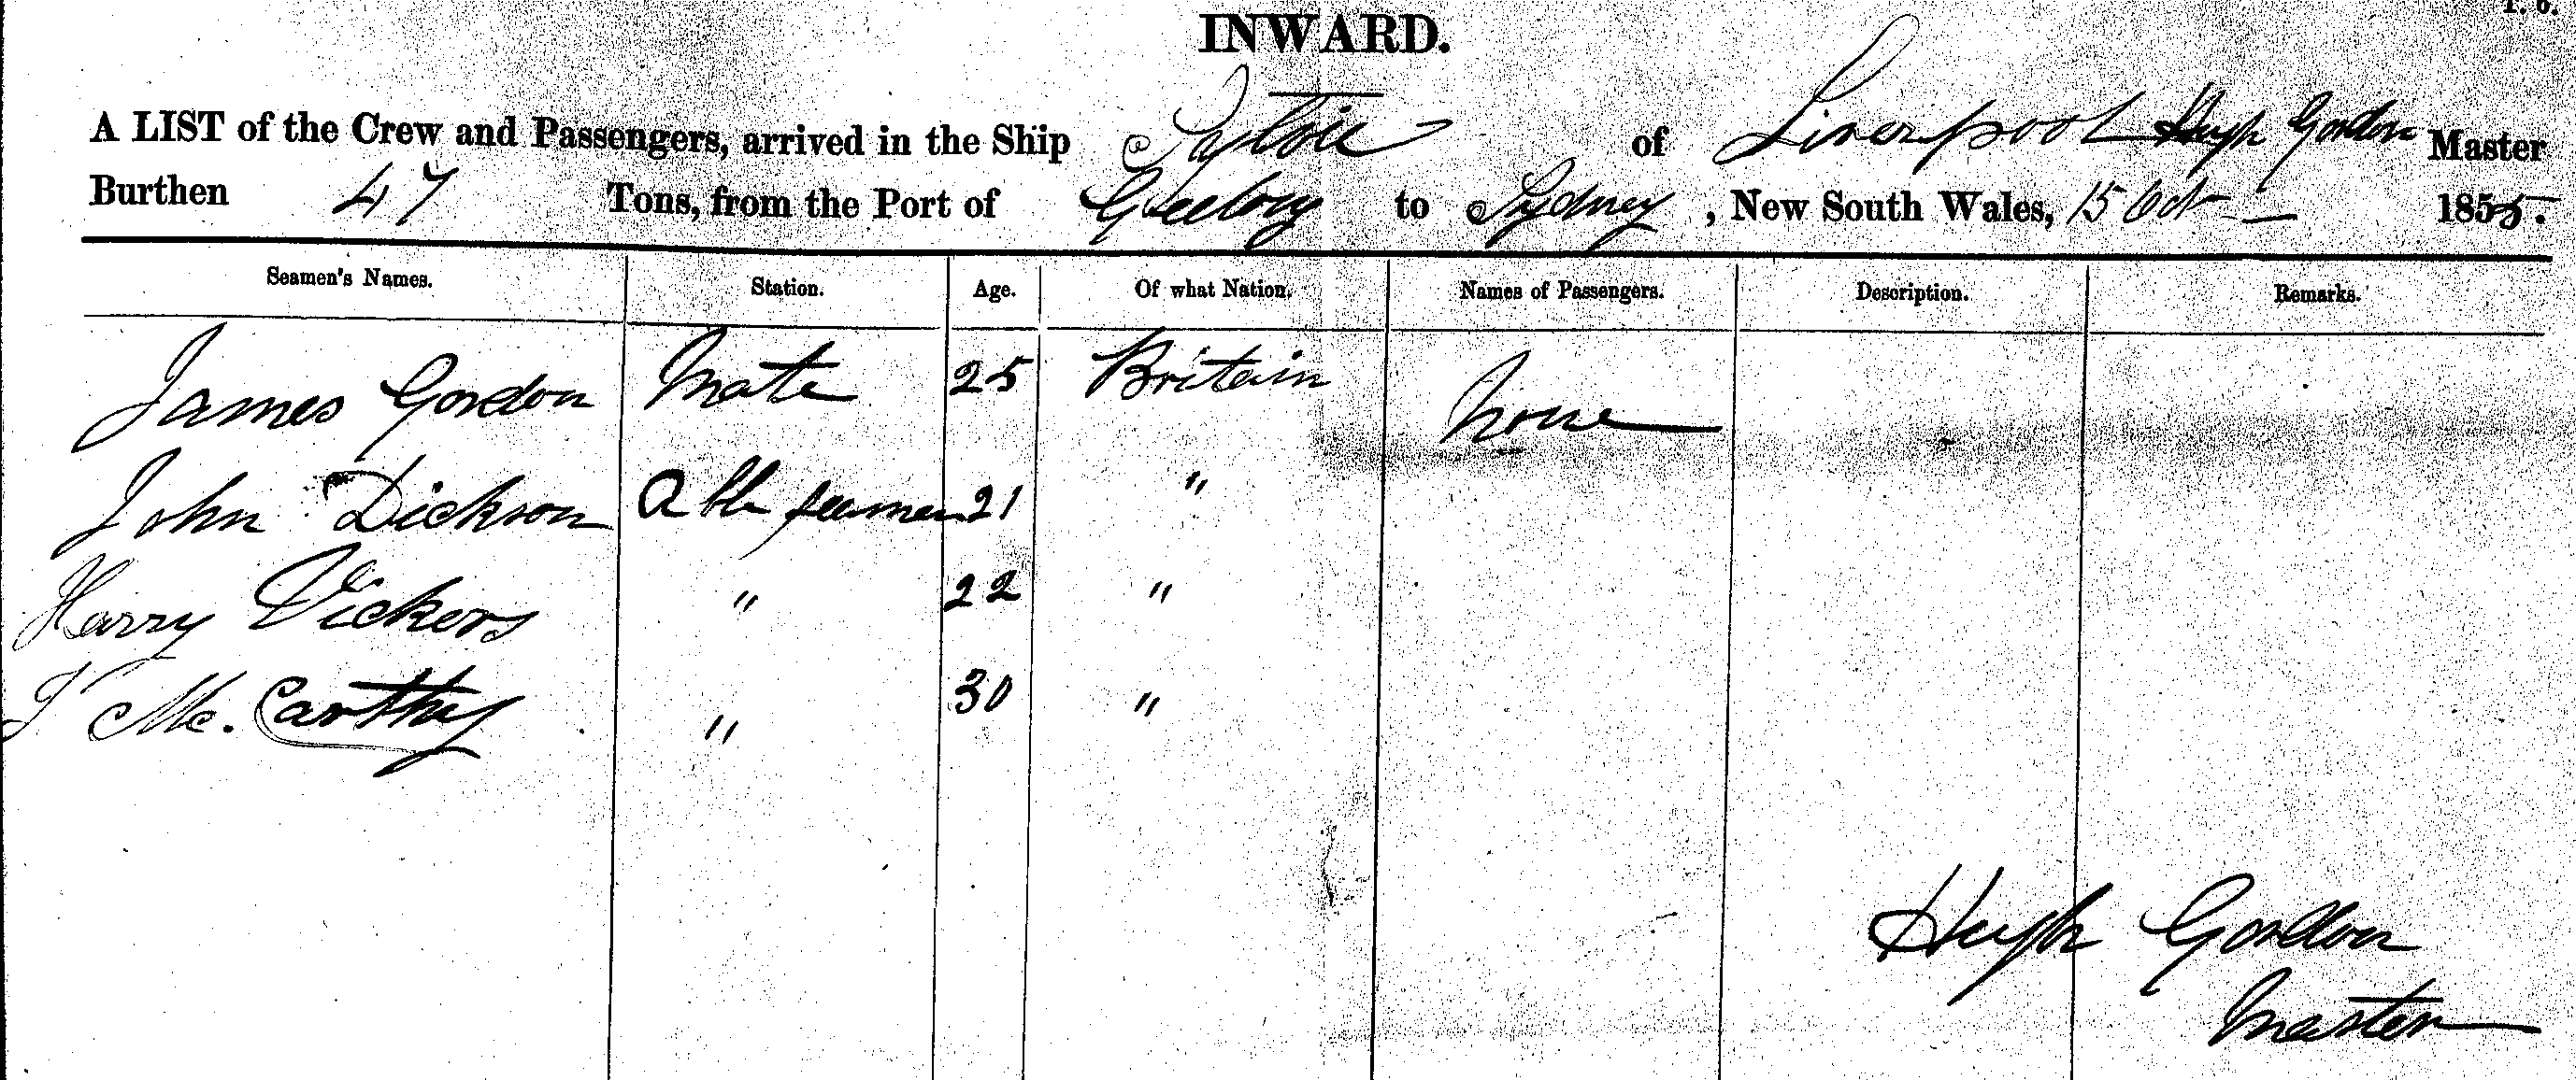 INWARD.
A LIST of the Crew and Passengers, arrived in the Ship Sylvie of Liverpool Hugh Gordon Master
Burthen 47 Tons, from the Port of Geelong to Sydney, New South Wales, 15 Oct 1855.
Seamen's Names. Station. Age. Of what Nation. Names of Passengers. Description. Remarks.
James Gordon Mate 25 Britain None
John Dickson Able seamen 21 "
Harry Vickers " 22 "
Mc. Carthy " 30 "
Hugh Gordon
Master